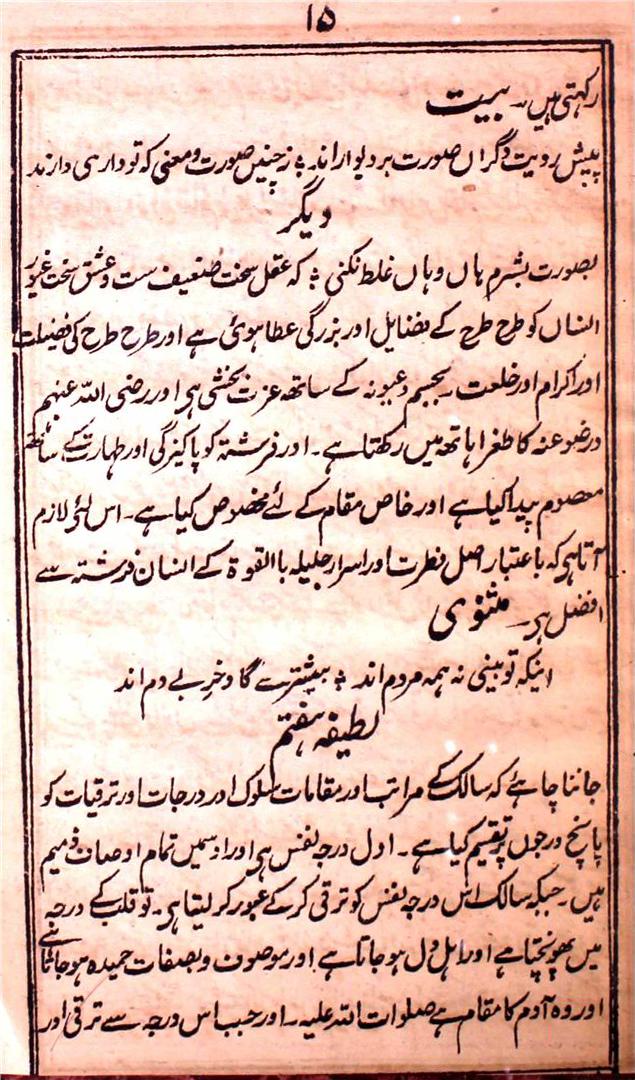 ۱۵
رکہتی ہیں۔ بیت
پیش رویت دگراں صورت بر دیوار اند ؛ نہ چنیں صورت و معنی کہ تو داری دارند
دیگر
بصورت بشرم ہاں و ہاں غلط نکنی ؛ کہ عقل سخت ضعیف ست و عشق سخت غیور
انسان کو طرح طرح کے فضایل اور بزرگی عطا ہوئی ہے اور طرح طرح کی فضیلت
اور اکرام اور خلعت یحبہم و یحبونہ کے ساتھ عزت بخشی ہی اور رضی اللہ عنہم
و رضوعنہ کا طغرا ہاتھ میں رکھتا ہے۔ اور فرشتہ کو پاکیزگی اور طہارت کے ساتھ
معصوم پیدا کیا ہے اور خاص مقام کے لئے مخصوص کیا ہے۔ اس لئی لازم
آتا ہی کہ باعتبار اصل فطرت اور اسرار جلیلہ باالقوۃ کے انسان فرشتہ سے
افضل ہی۔ مثنوی
اینکہ تو بینی نہ ہمہ مردم اند ؛ بیشترے گا و خرِ بے دم اند
لطیفہ ہفتم
جاننا چاہئے کہ سالک کے مراتب اور مقامات سلوک اور درجات اور ترقیات کو
پانچ درجوں پر تقیم کیا ہے۔ اول درجہ نفس ہی اور اوسمیں تمام اوصاف ذمیم
ہیں۔ جبکہ سالک اس درجہ نفس کو ترقی کر کے عبور کر لیتا ہی۔ تو قلب کے درجہ
میں پھونچتا ہے اور اہل دل ہو جاتا ہے اور موصوف و بصفات حمیدہ ہو جاتا ہے
اور وہ آدم کا مقام ہے صلوات اللہ علیہ۔ اور جب اس درجہ سے ترقی اور